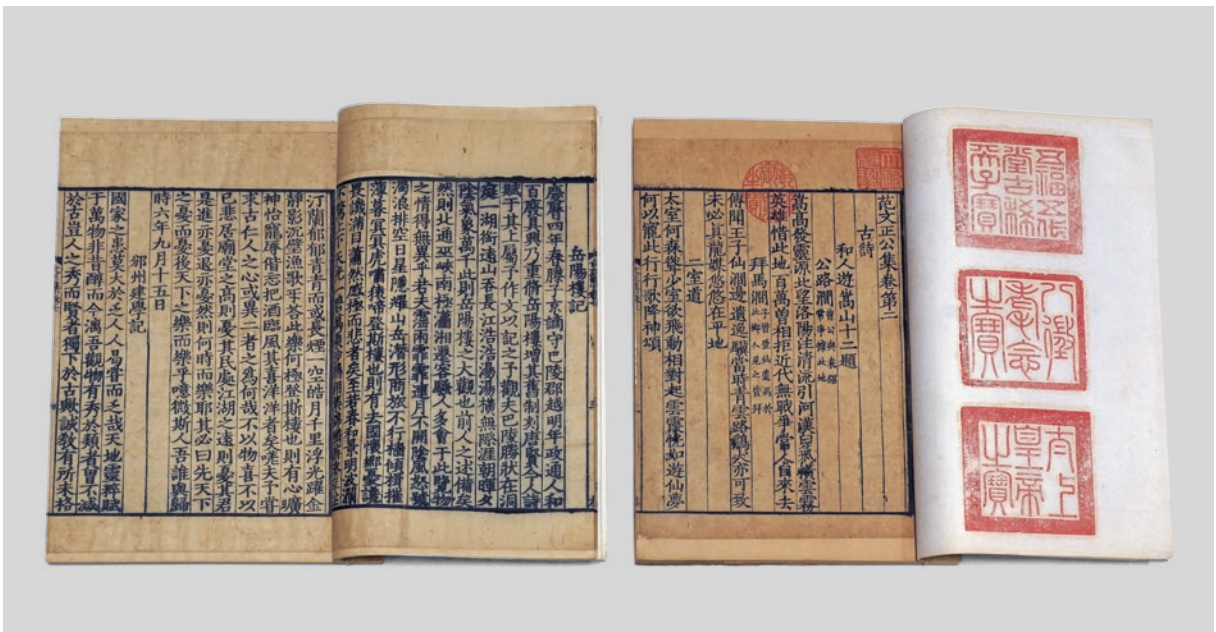 岳陽樓記
慶曆四年春滕子京謫守巴陵郡越明年政通人和
百廢具興乃重脩岳陽樓增其舊制刻唐賢今人詩
賦于其上屬予作文以記之予觀夫巴陵勝狀在洞
庭一湖銜遠山吞長江浩浩湯湯横無際涯朝暉夕
陰氣象萬千此則岳陽樓之大觀也前人之述備矣
然則北通巫峽南極瀟湘遷客騷人多會于此覽物
之情得無異乎若夫霪雨霏霏連月不開陰風怒號
濁浪排空日星隱耀山岳潛形商旅不行檣傾楫摧
薄暮冥冥虎嘯猿啼登斯樓也則有去國懷鄉憂讒
畏譏滿目蕭然感極而悲者矣至若春和景明波瀾
汀蘭郁郁青青而或長煙一空皓月千里浮光躍金
靜影沉壁漁歌互荅此樂何極登斯樓也則有心曠
神怡寵辱偕忘把酒臨風其喜洋洋者矣嗟夫予嘗
求古仁人之心或異二者之為何哉不以物喜不以
己悲居廟堂之高則憂其民處江湖之遠則憂其君
是進亦憂退亦憂然則何時而樂耶其必曰先天下
之憂而憂後天下之樂而樂乎噫微斯人吾誰與歸
時六年九月十五日
邠州建學記
國家之患莫大於乏人人曷甞而乏哉天地靈粹賦
于萬物非昔醇而今漓吾觀物有秀於類者曾不減
於古豈人之秀而賢者獨下於古歟誠教有所未格
五福五代
堂古稀
天子寶
八徵
耄念
之寶
太上
皇帝
之寶
范文正公集卷第二
古詩
和人遊嵩山十二題
公路澗曹公與袁紹常爭據此地
嵩高發靈源北望洛陽注清流引河漢白氣㡨雲霧
英雄惜此地百萬曾相拒近代無戰爭常人自來去
拜馬澗子晉登仙遺馬於此鄉人見之皆拜
傳聞王子仙澗邊遺逸驥當時青雲路鶴犬亦可致
未必真龍媒悠悠在平地
二室道
太室何森聳少室欲飛動相對起雲靈恍如遊仙夢
何以寵此行行歌降神頌